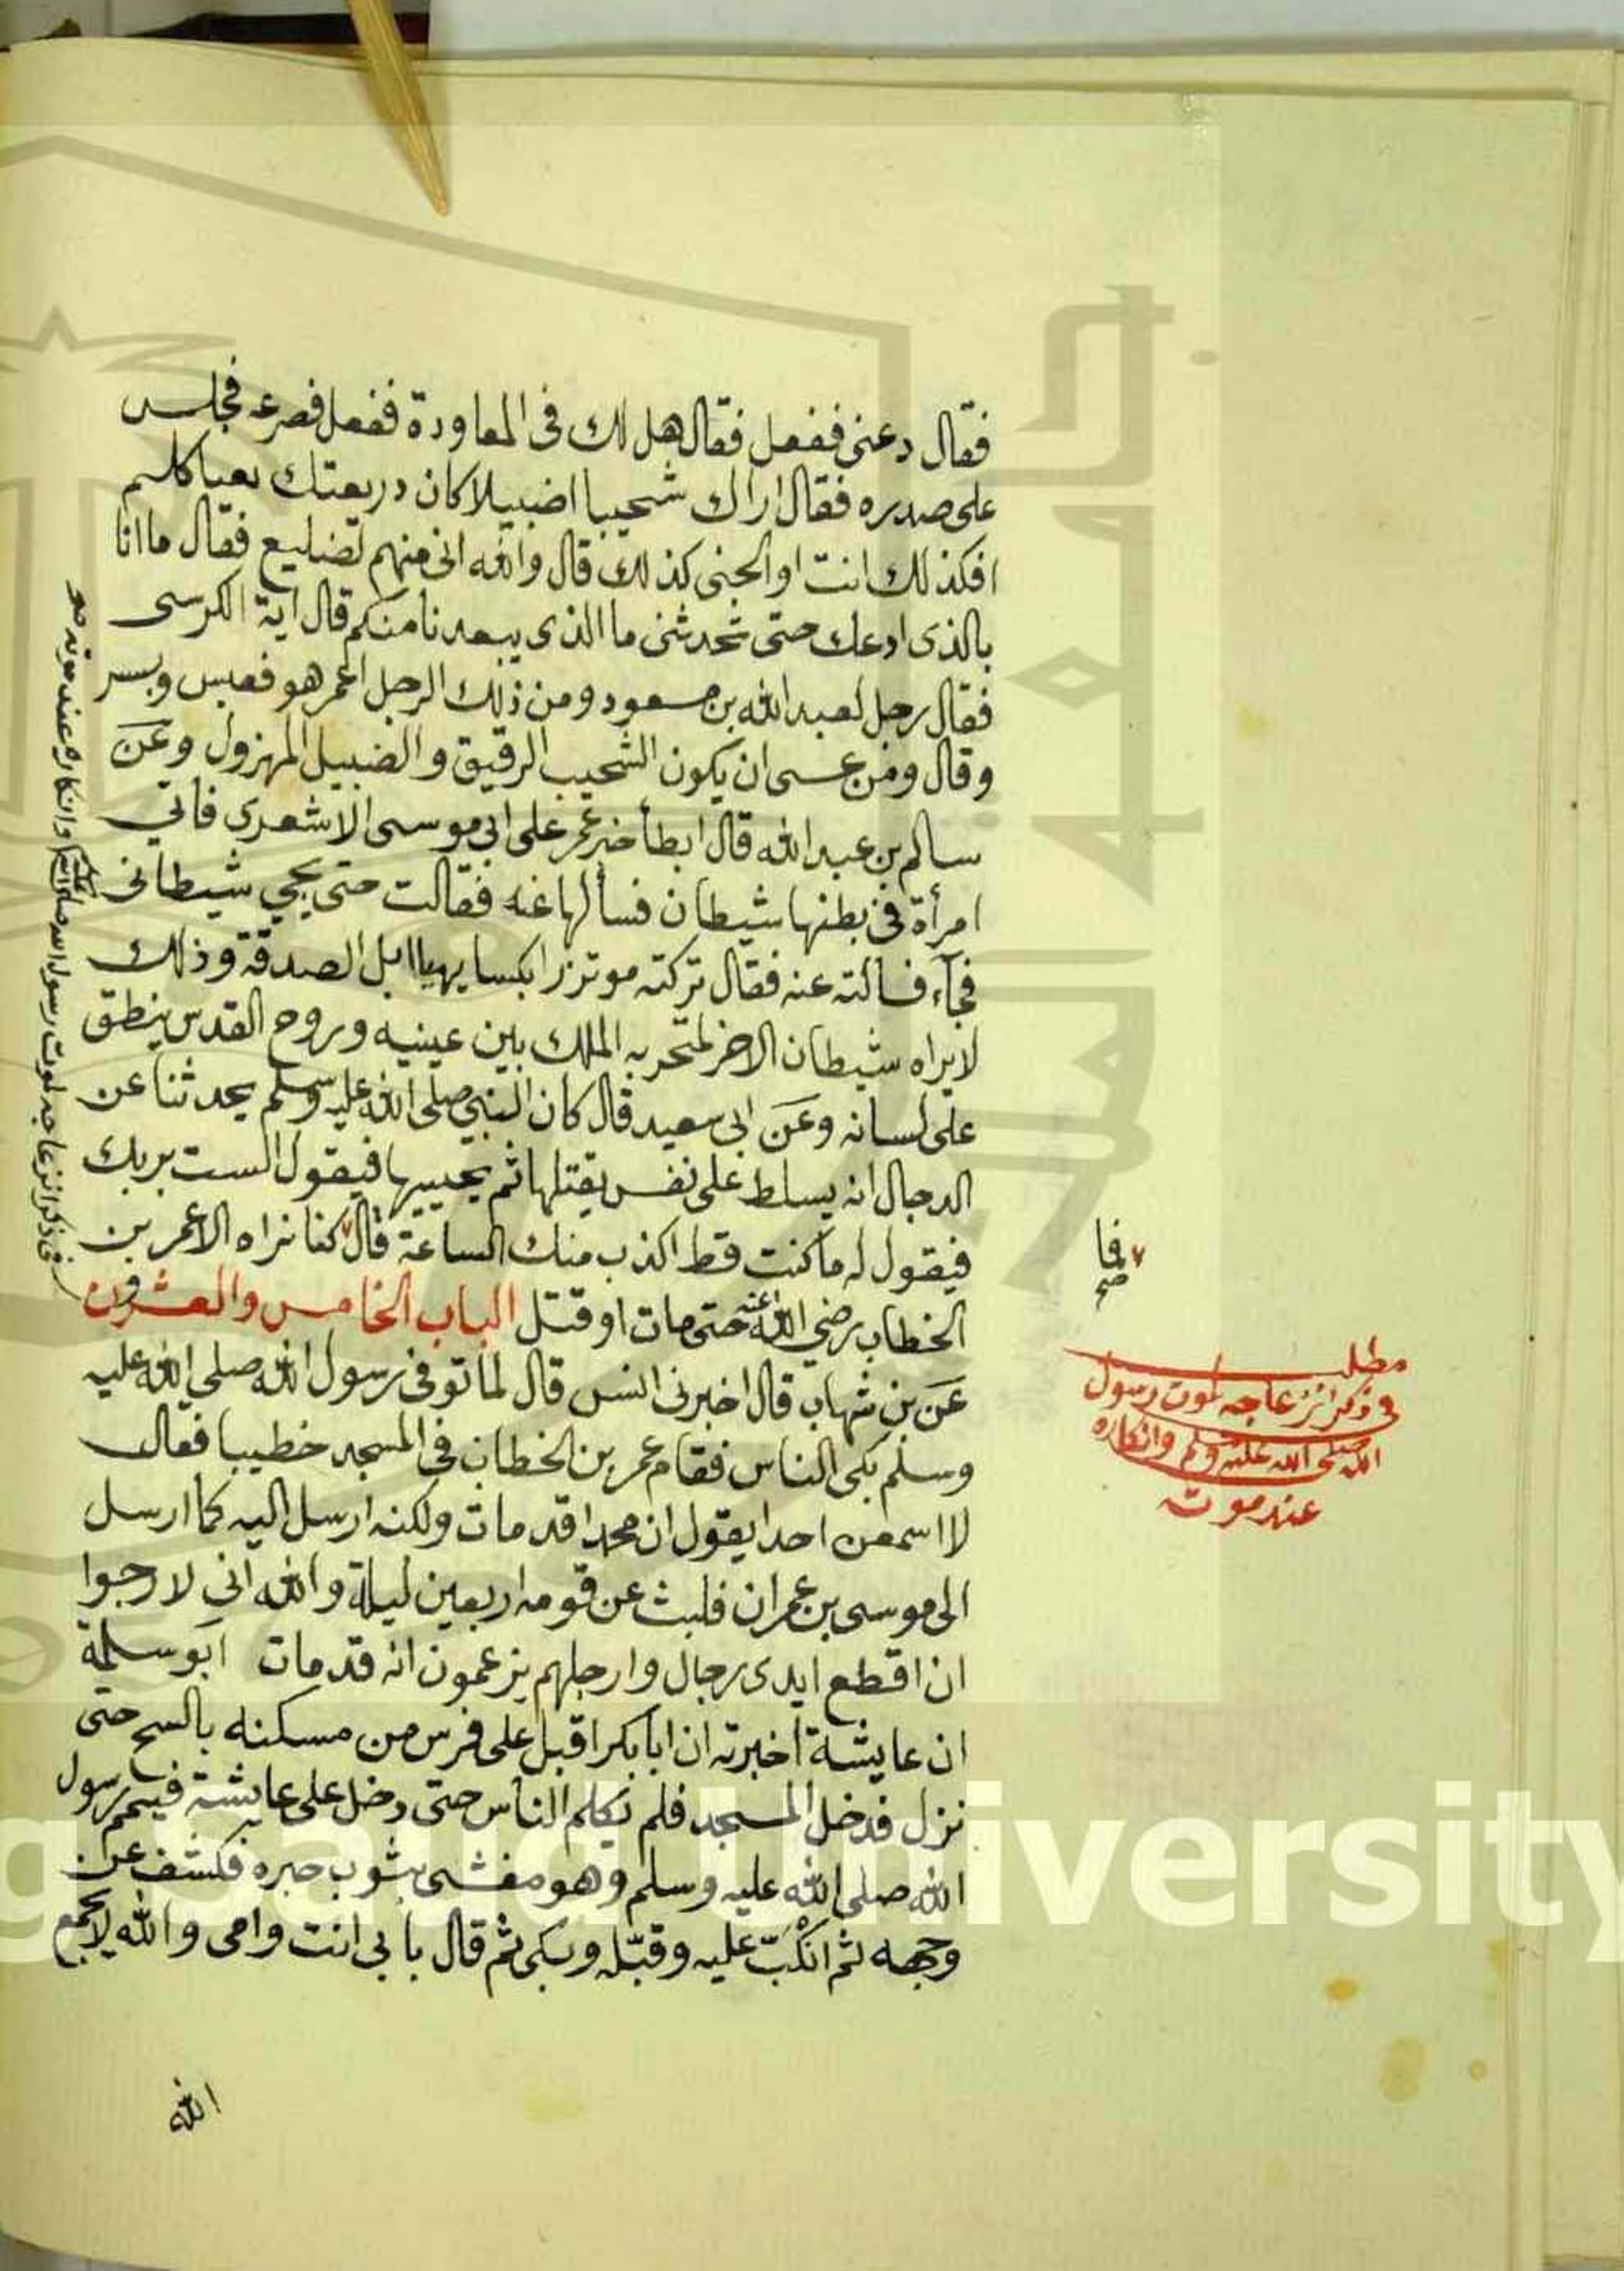 فقال دعني ففعل فقال هل لك في المعاودة ففعل فصرعه فجلس
على صدره فقال اراك شحيبا اضبيلا كان دريعتك بعيا كلم
افكذلك انت او الجني كذلك قال والله اني منهم لضليع فقال ما انا
بالذي ادعك حتى تحدثني ما الذي يبعدنا منكم قال اية الكرسي
فقال رجل لعبد الله بن مسعود ومن ذلك الرجل اعمر هو فعبس وبسر
وقال ومن عسى ان يكون الشحيب الرقيق والضبيل المهزول وعن
سالم بن عبد الله قال ابطأ خبر عمر على ابي موسى الاشعري فاتي
امرأة في بطنها شيطان فسألها عنه فقالت حتى يجي شيطاني
فجآء فسالته عنه فقال تركته موتزرا بكسا يهيا ابل الصدقة وذلك
لا يراه شيطان الاخر لمنخريه الملك بين عينيه وروح القدس ينطق
على لسانه وعن ابي سعيد قال كان النبي صلى الله عليه وسلم يحدثنا عن
الدجال انه يسلط على نفس يقتلها ثم يحييها فيقول الست بربك
فيقول له ما كنت قط اكذب منك الساعة قال كنا نراه الا عمر بن
الخطاب رضي الله عنه حتى مات او قتل الباب الخامس والعشرون
عن بن شهاب قال اخبرني انس قال لما توفى رسول الله صلى الله عليه
وسلم بكى الناس فقام عمر بن الخطاب في المسجد خطيبا فقال
لا اسمعن احدا يقول ان محمدا قد مات ولكنه ارسل اليه كما ارسل
الى موسى بن عمران فلبث عن قومه اربعين ليلة والله اني لارجوا
ان اقطع ايدي رجال وارجلهم يزعمون انه قد مات ابو سلمة
ان عايشة اخبرته ان ابا بكر اقبل على فرس من مسكنه بالسح حتى
نزل فدخل المسجد فلم يكلم الناس حتى دخل على عايشة فيمم رسول
الله صلى الله عليه وسلم وهو مغشى بثوب حبره فكشف عن
وجهه ثم انكبّ عليه وقبّله وبكى ثم قال بابي انت وامي والله لا يجمع
الله
فا
صح
مطلب
في ذكر انزعاجه لموت رسول
الله صلى الله عليه وسلم وانكاره
عند موت
في ذكر انزعاجه لموت رسول الله وانكاره عند موته
King Saud University